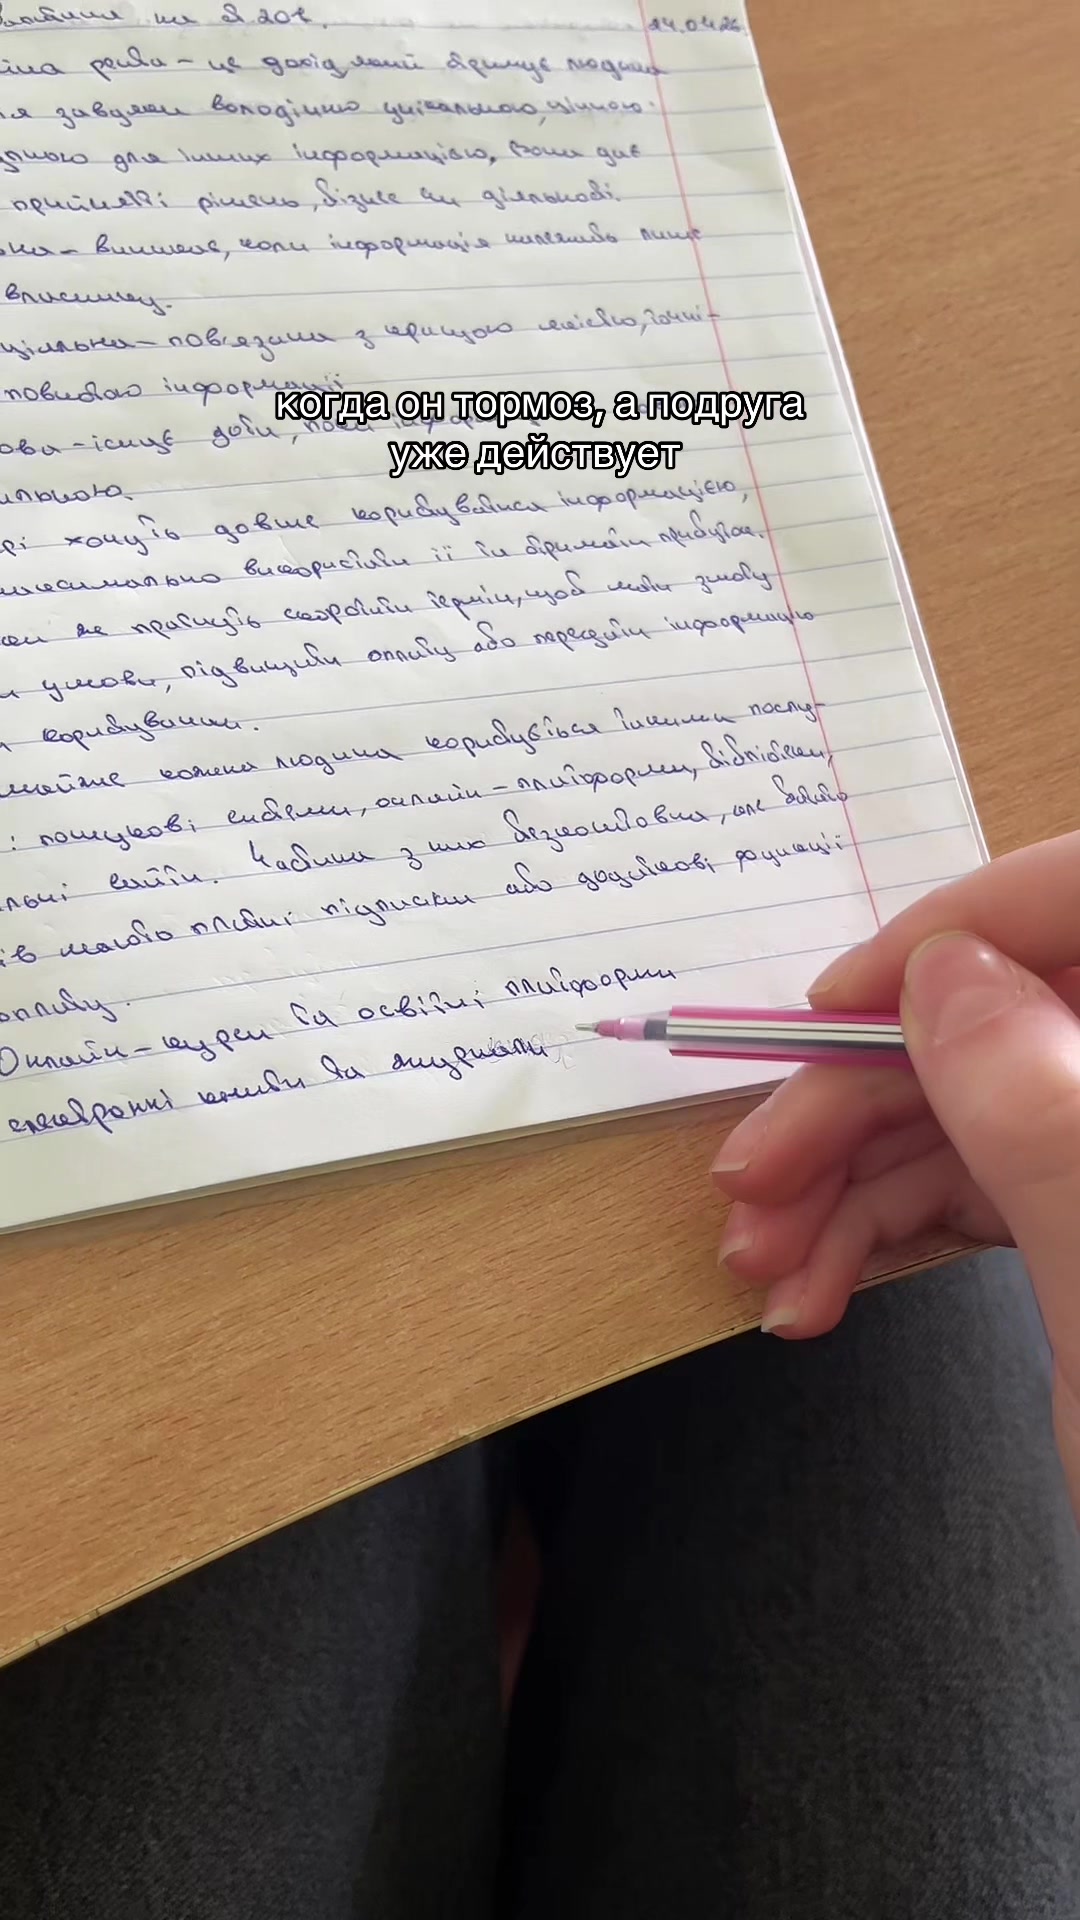 на ст. 201. 24.04.26.
рента – це дохід, який отримує людина
завдяки володінню унікальною, цінною
для інших інформацією. Вона дає
прийнятті рішень, бізнесі чи діяльності.
виникає, коли інформація належить лише
власнику.
пов'язана з кращою якістю, точні-
інформації
існує доти, поки

хочуть довше користуватися інформацією,
максимально використати її та отримати прибуток.
же прагнуть скоротити термін, щоб мати змогу
умови, підвищити оплату або передати інформацію
користування.
майже кожна людина користується такими послу-
: пошукові системи, онлайн-платформи, бібліотеки,
сайти. Частина з них безкоштовна, але багато
мають платні підписки або додаткові функції
оплату.
Онлайн-курси та освітні платформи
електронні книги та журнали
когда он тормоз, а подруга
уже действует